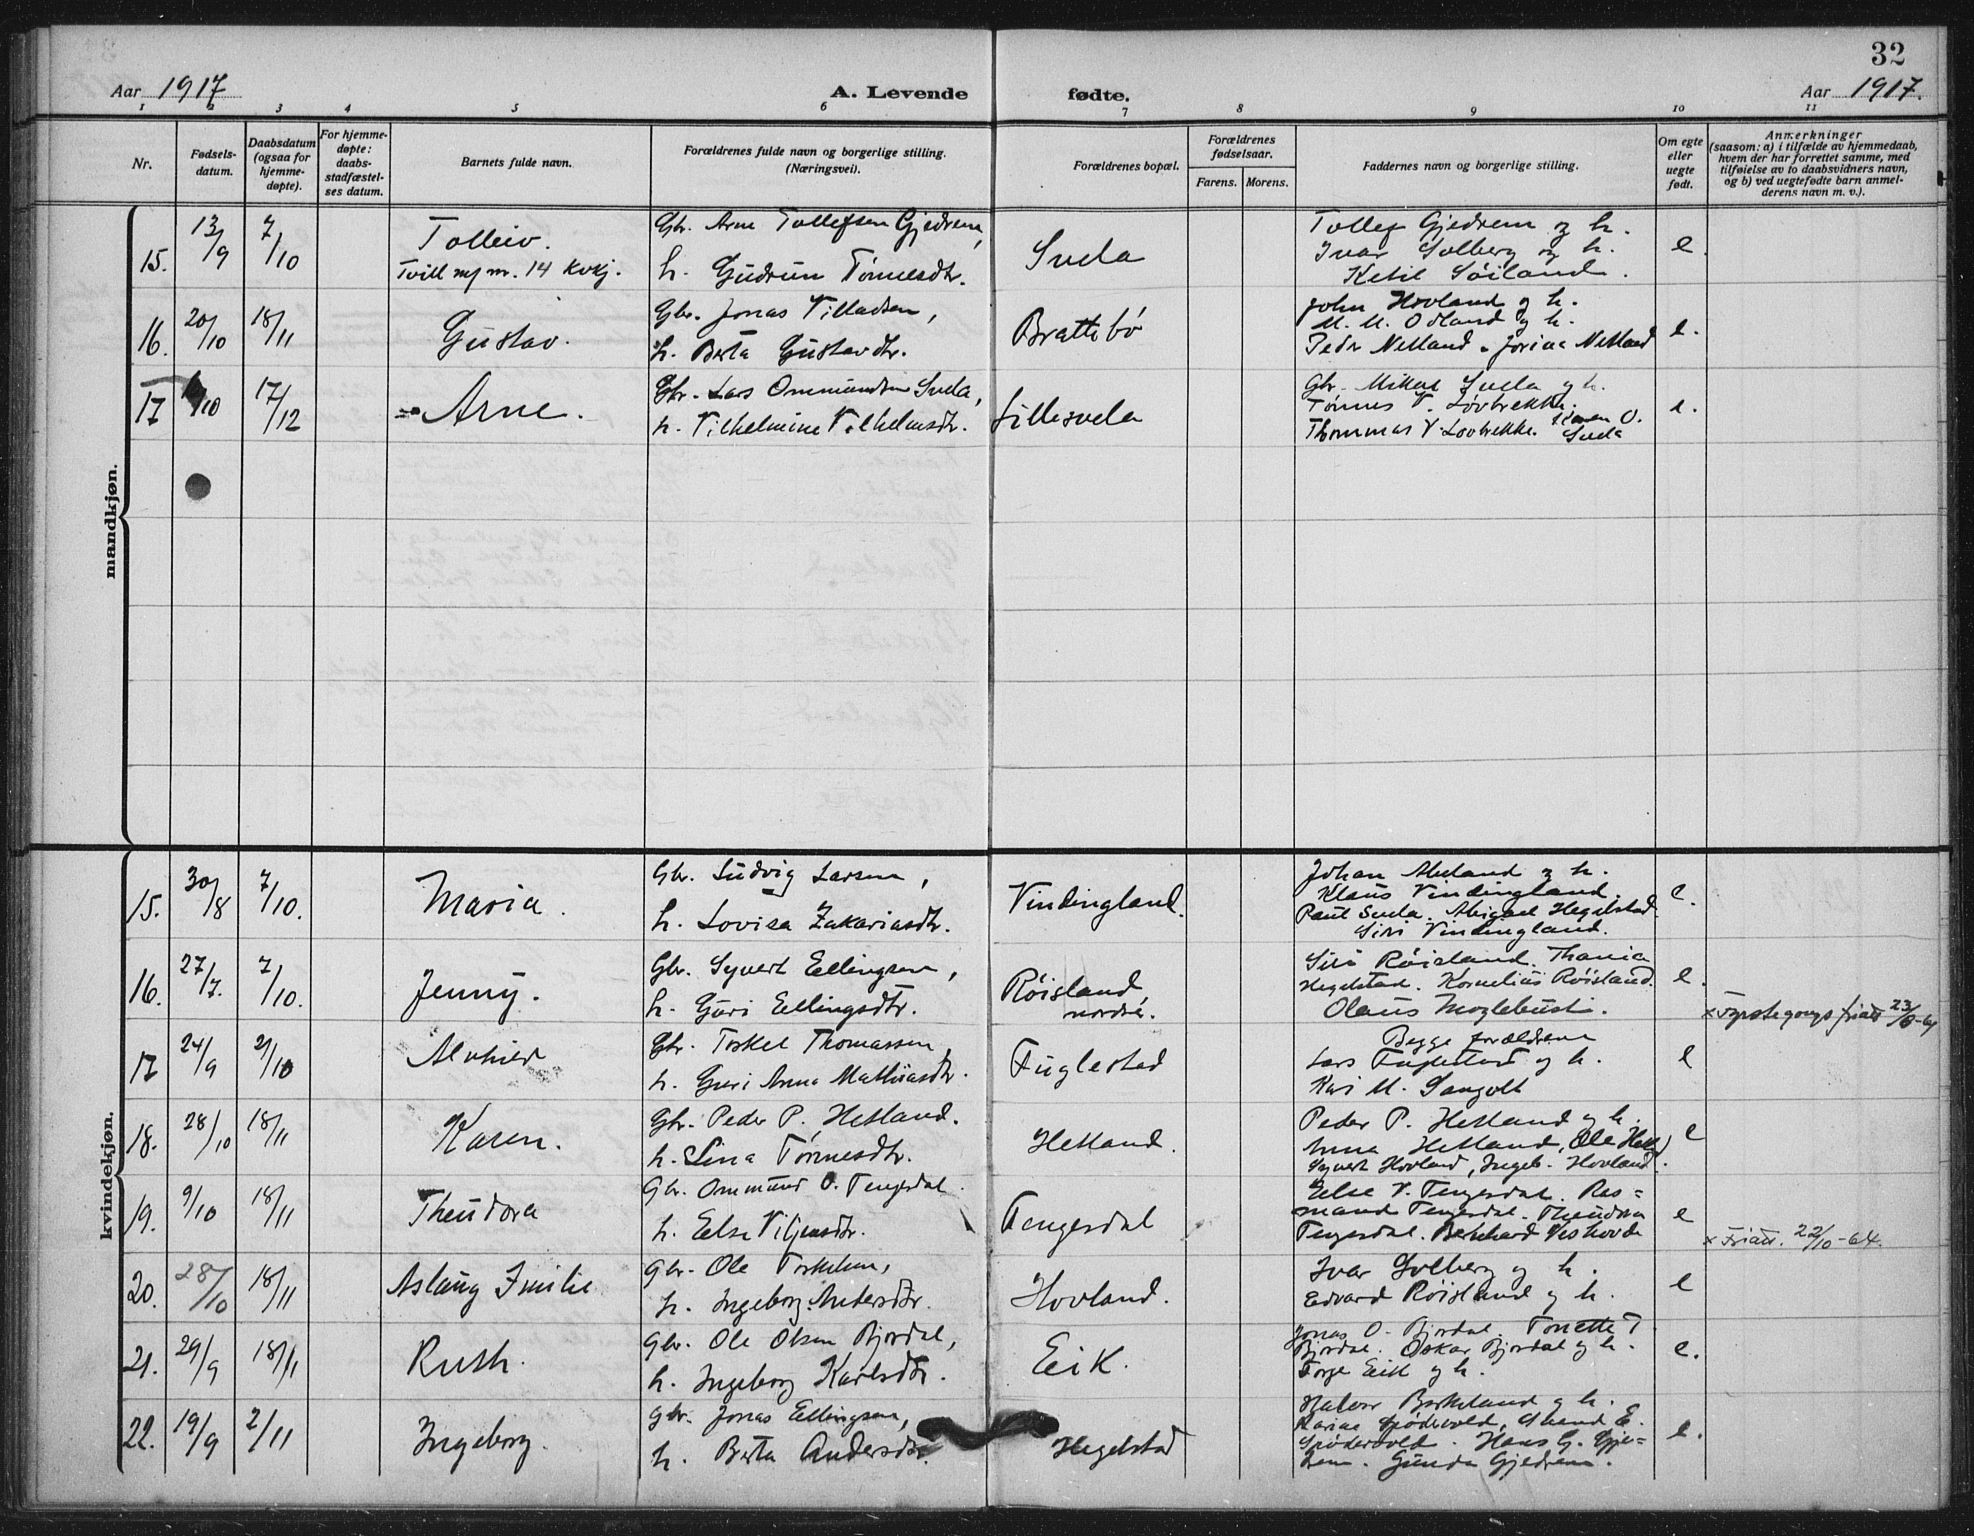 32
Aar 1917
A. Levende
fødte.
Aar 1917.
1 2 3 4 5 6 7 8 9 10 11
Nr.
Fødsels-
datum.
Daabsdatum
(ogsaa for
hjemme-
døpte).
For hjemme-
døpte:
daabs-
stadfæstel-
ses datum.
Barnets fulde navn.
Forældrenes fulde navn og borgerlige stilling.
(Næringsvei).
Forældrenes bopæl.
Forældrenes
fødselsaar.
Farens. Morens.
Faddernes navn og borgerlige stilling.
Om egte
eller
uegte
født.
Anmerkninger
(saasom: a) i tilfælde av hjemmedaab,
hvem der har forrettet samme, med
tilføielse av to daabsvidners navn,
og b) ved uegtefødte barn anmel-
derens navn m. v.).
mandkjøn.
15. 13/9 7/10 Tolleiv.
Tvill m/ nr. 14 kvkj.
Gbr. Arne Tollefsen Gjedrem,
h. Gudrun Tønnesdtr.
Svela
Tollef Gjedrem og h.
Ivar Solberg og h.
Ketil Søiland.
e.
16. 20/10 18/11 Gustav.
Gbr. Jonas Villadsen,
h. Berta Gustavdtr.
Brattebø
John Hovland og h.
M. M. Odland og h.
Peder Netland. Jorina Netland
e.
17 /10 17/12 Arne.
Gbr. Lars Ommundsen Svela,
h. Vilhelmine Vilhelmsdtr.
Lillesvela
Gbr. Mikal Svela og h.
Tønnes V. Løvbrekke.
Thommas V. Løvbrekke. Karen O.
Svela
e.
kvindekjøn.
15. 30/8 7/10. Maria.
Gbr. Ludvig Larsen,
h. Lovisa Zakariasdtr.
Vindingland.
Johan Aleland og h.
Klaus Vindingland.
Paul Svela. Abigael Hegelstad.
Siri Vindingland.
e.
16. 27/7. 7/10. Jenny.
Gbr. Syvert Ellingsen,
h. Guri Ellingsdtr.
Røisland
nordre.
Siri Røisland. Thania
Hegelstad. Kornelius Røisland.
Olaus Moglebust.
e.
x Fyrstegongs friatt 23/8-61
17 24/9 21/10 Alvhild
Gbr. Torkel Thomassen,
h. Guri Anna Mathiasdtr.
Fuglestad
Begge forældrene
Lars Fuglestad og h.
Kari M. Sangolt
e
18. 28/10 18/11 Karen.
Gbr. Peder P. Hetland.
h. Lina Tønnesdtr.
Hetland.
Peder P. Hetland og h.
Anna Hetland, Ole Hetld)
Syvert Hovland, Ingeb. Hovland.
e
19. 9/10 18/11 Theodora
Gbr. Ommund O. Tengesdal.
h. Else Viljensdtr.
Tengesdal
Else V. Tengesdal. Ras=
mund Tengesdal. Theodora
Tengesdal. Bernhard Veshovde
e
x Friatt. 22/10-64.
20. 28/10 18/11 Aslaug Emilie
Gbr. Ole Torkelsen,
h. Ingeborg Andersdtr.
Hovland.
Ivar Solberg og h.
Edvard Røisland og h.
e
21. 29/9 18/11 Ruth.
Gbr. Ole Olsen Bjordal,
h. Ingeborg Karlsdtr.
Eik.
Jonas O. Bjordal. Tonette T.
Bjordal. Oskar Bjordal og h.
Torge Eik og h.
e.
22. 19/9 2/11 Ingeborg.
Gbr. Jonas Ellingsen,
h. Berta Andersdtr.
Hegelstad
Halvor Birkeland og h.
Karine Spødervold. E.
Spødervold. Hans G. Gje=
drem. Gunda Gjedrem.
e.